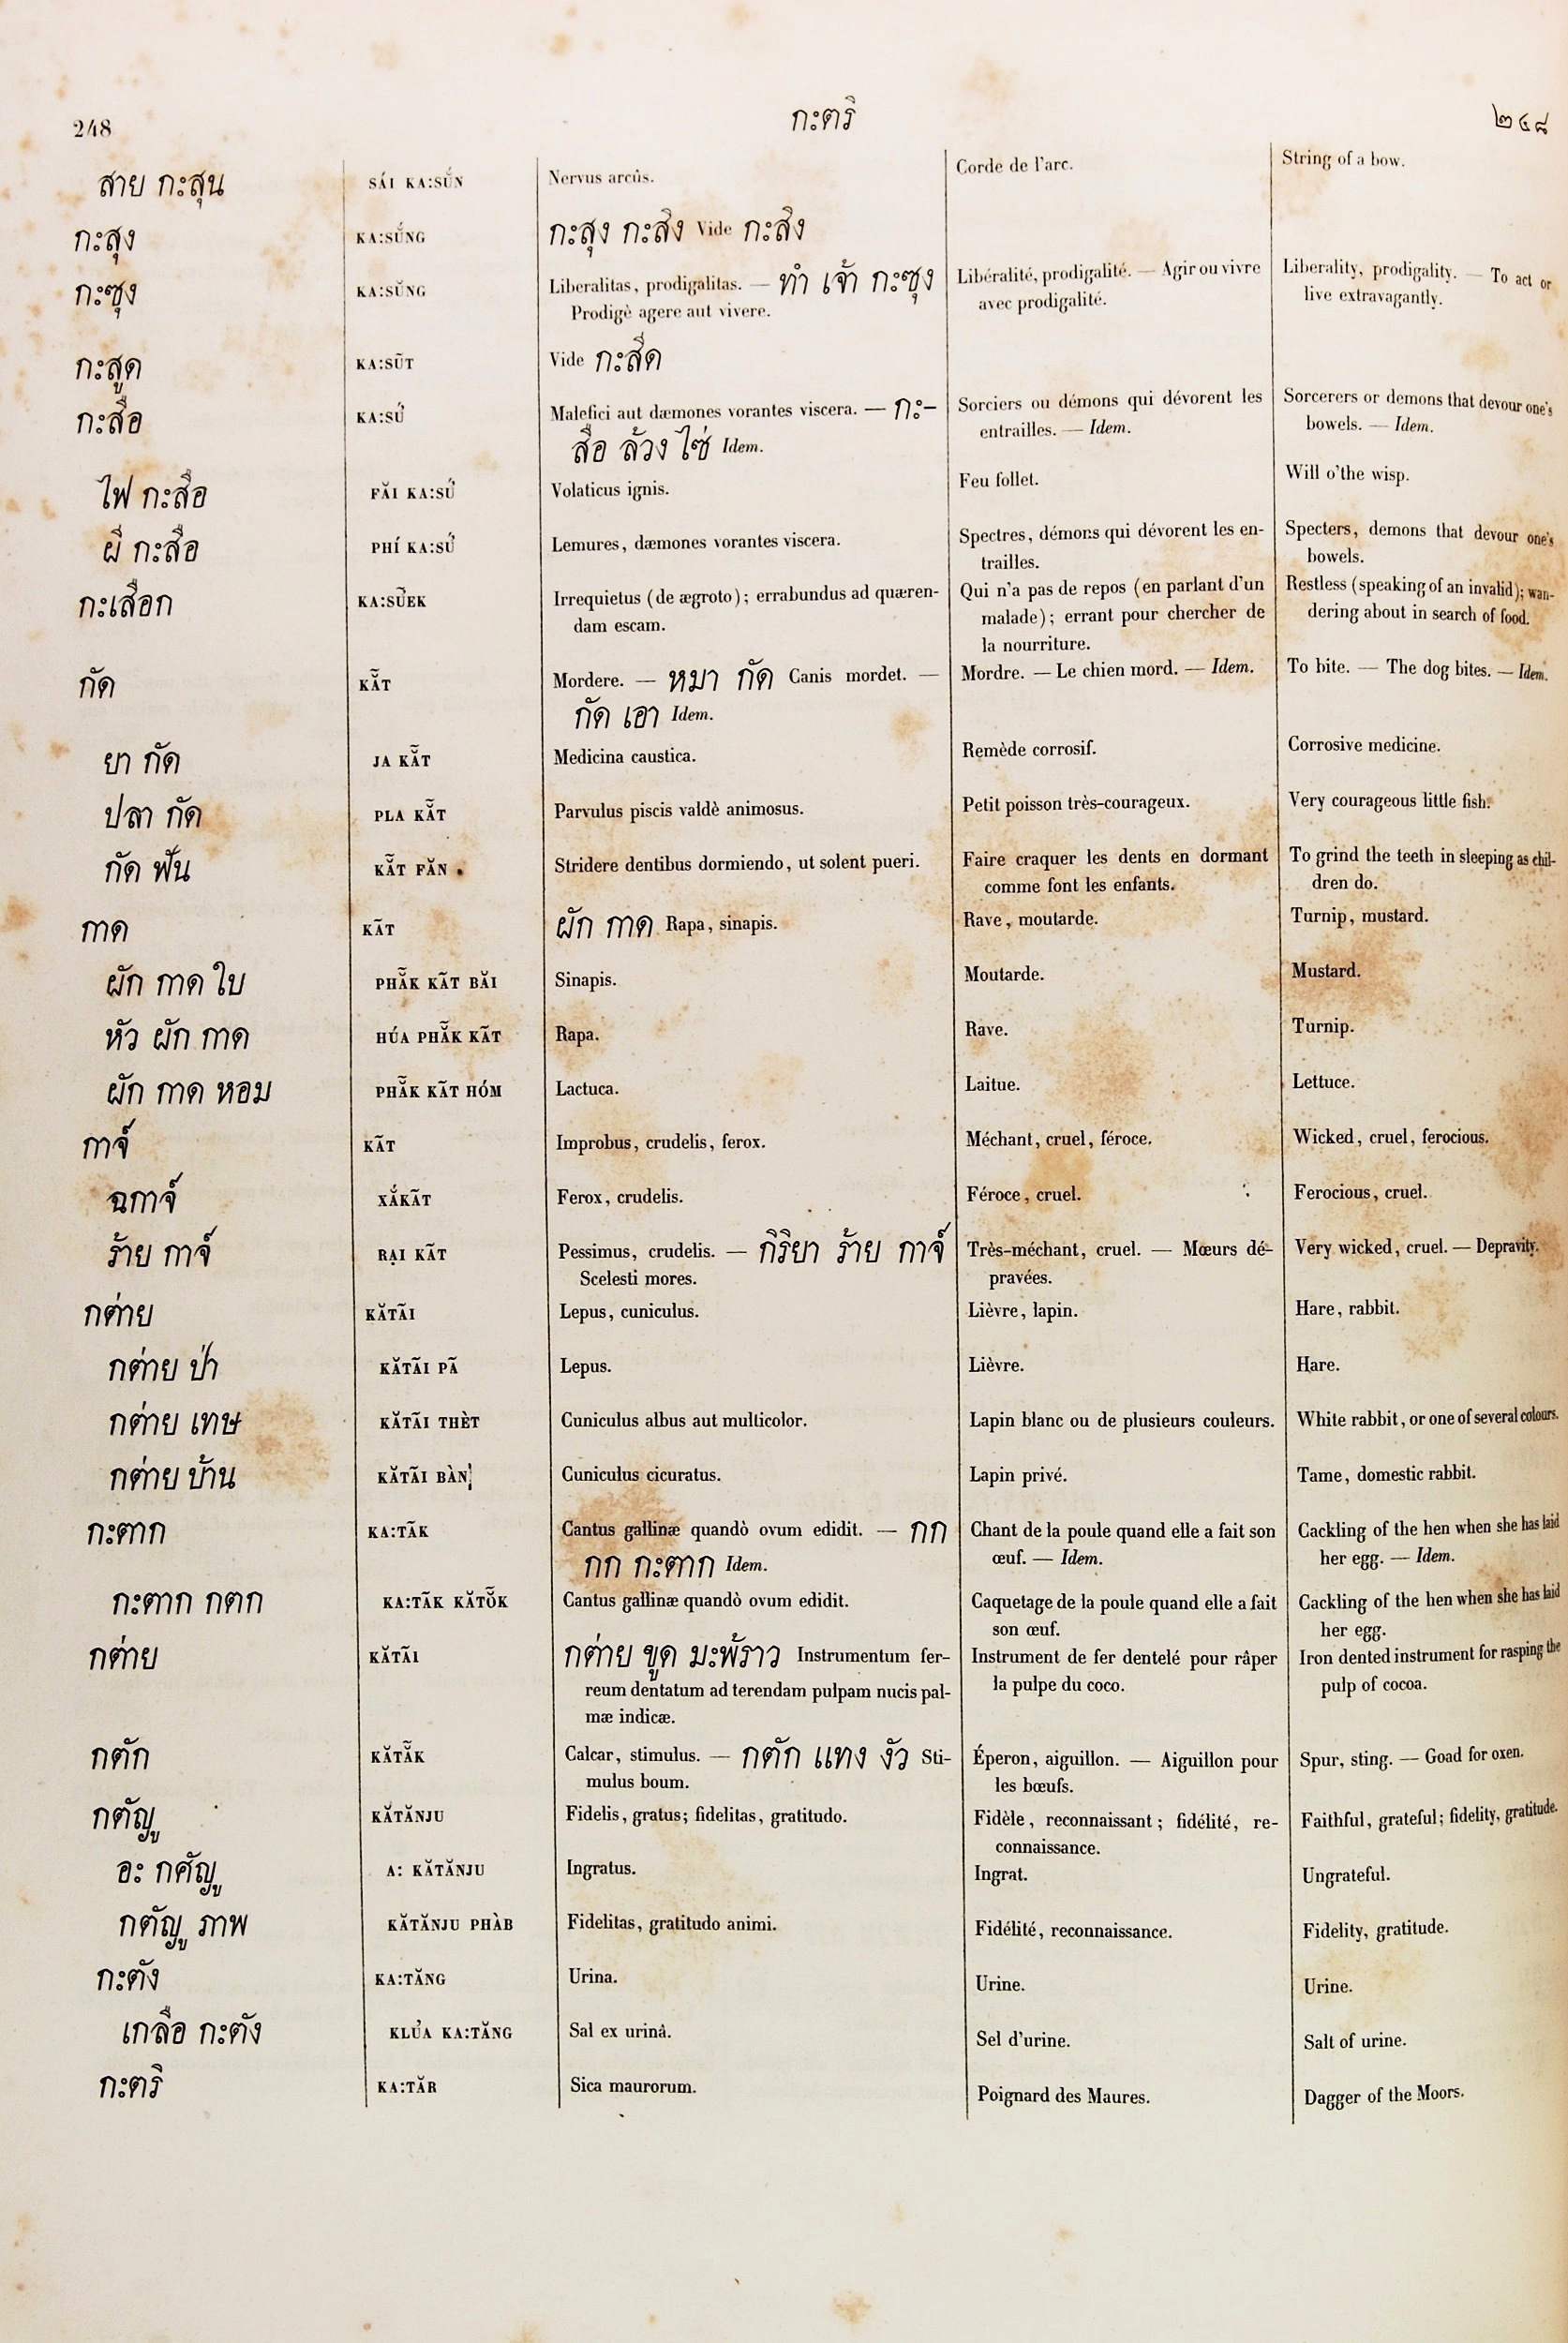 248 กะตริ ๒๔๘
สาย กะสุน SÁI KA:SŬN Nervus arcûs. Corde de l'arc. String of a bow.
กะสุง KA:SŬNG กะสุง กะสิง Vide กะสิง
กะซุง KA:SŬNG Liberalitas, prodigalitas. — ทำ เจ้า กะซุง Libéralité, prodigalité. — Agir ou vivre Liberality, prodigality. — To act or
Prodigè agere aut vivere. avec prodigalité. live extravagantly.
กะสูด KA:SŨT Vide กะสืด
กะสือ KA:SÚ Malefici aut dæmones vorantes viscera. — กะ- Sorciers ou démons qui dévorent les Sorcerers or demons that devour one's
สือ ล้วง ไซ่ Idem. entrailles. — Idem. bowels. — Idem.
ไฟ กะสือ FĂI KA:SÚ Volaticus ignis. Feu follet. Will o'the wisp.
ผี กะสือ PHÍ KA:SÚ Lemures, dæmones vorantes viscera. Spectres, démons qui dévorent les en- Specters, demons that devour one's
trailles. bowels.
กะเสือก KA:SŨEK Irrequietus (de ægroto); errabundus ad quæren- Qui n'a pas de repos (en parlant d'un Restless (speaking of an invalid); wan-
dam escam. malade); errant pour chercher de dering about in search of food.
la nourriture.
กัด KẴT Mordere. — หมา กัด Canis mordet. — Mordre. — Le chien mord. — Idem. To bite. — The dog bites. — Idem.
กัด เอา Idem.
ยา กัด JA KẴT Medicina caustica. Remède corrosif. Corrosive medicine.
ปลา กัด PLA KẴT Parvulus piscis valdè animosus. Petit poisson très-courageux. Very courageous little fish.
กัด ฟัน KẴT FĂN Stridere dentibus dormiendo, ut solent pueri. Faire craquer les dents en dormant To grind the teeth in sleeping as chil-
comme font les enfants. dren do.
กาด KÃT ผัก กาด Rapa, sinapis. Rave, moutarde. Turnip, mustard.
ผัก กาด ใบ PHẴK KÃT BĂI Sinapis. Moutarde. Mustard.
หัว ผัก กาด HÚA PHẴK KÃT Rapa. Rave. Turnip.
ผัก กาด หอม PHẴK KÃT HÓM Lactuca. Laitue. Lettuce.
กาจ์ KÃT Improbus, crudelis, ferox. Méchant, cruel, féroce. Wicked, cruel, ferocious.
ฉกาจ์ XẮKÃT Ferox, crudelis. Féroce, cruel. Ferocious, cruel.
ร้าย กาจ์ RẠI KÃT Pessimus, crudelis. — กิริยา ร้าย กาจ์ Très-méchant, cruel. — Mœurs dé- Very wicked, cruel. — Depravity.
Scelesti mores. pravées.
กต่าย KĂTÃI Lepus, cuniculus. Lièvre, lapin. Hare, rabbit.
กต่าย ป่า KĂTÃI PÃ Lepus. Lièvre. Hare.
กต่าย เทษ KĂTÃI THÈT Cuniculus albus aut multicolor. Lapin blanc ou de plusieurs couleurs. White rabbit, or one of several colours.
กต่าย บ้าน KĂTÃI BÀN Cuniculus cicuratus. Lapin privé. Tame, domestic rabbit.
กะตาก KA:TÃK Cantus gallinæ quandò ovum edidit. — กก Chant de la poule quand elle a fait son Cackling of the hen when she has laid
กก กะตาก Idem. œuf. — Idem. her egg. — Idem.
กะตาก กตก KA:TÃK KĂTỎ̆K Cantus gallinæ quandò ovum edidit. Caquetage de la poule quand elle a fait Cackling of the hen when she has laid
son œuf. her egg.
กต่าย KĂTÃI กต่าย ขูด มะพ้ราว Instrumentum fer- Instrument de fer dentelé pour râper Iron dented instrument for rasping the
reum dentatum ad terendam pulpam nucis pal- la pulpe du coco. pulp of cocoa.
mæ indicæ.
กตัก KĂTẴK Calcar, stimulus. — กตัก แทง งัว Sti- Éperon, aiguillon. — Aiguillon pour Spur, sting. — Goad for oxen.
mulus boum. les bœufs.
กตัญู KĂTĂNJU Fidelis, gratus; fidelitas, gratitudo. Fidèle, reconnaissant; fidélité, re- Faithful, grateful; fidelity, gratitude.
connaissance.
อะ กศัญู A: KĂTĂNJU Ingratus. Ingrat. Ungrateful.
กตัญู ภาพ KĂTĂNJU PHÀB Fidelitas, gratitudo animi. Fidélité, reconnaissance. Fidelity, gratitude.
กะตัง KA:TĂNG Urina. Urine. Urine.
เกลือ กะตัง KLỦA KA:TĂNG Sal ex urinâ. Sel d'urine. Salt of urine.
กะตริ KA:TĂR Sica maurorum. Poignard des Maures. Dagger of the Moors.